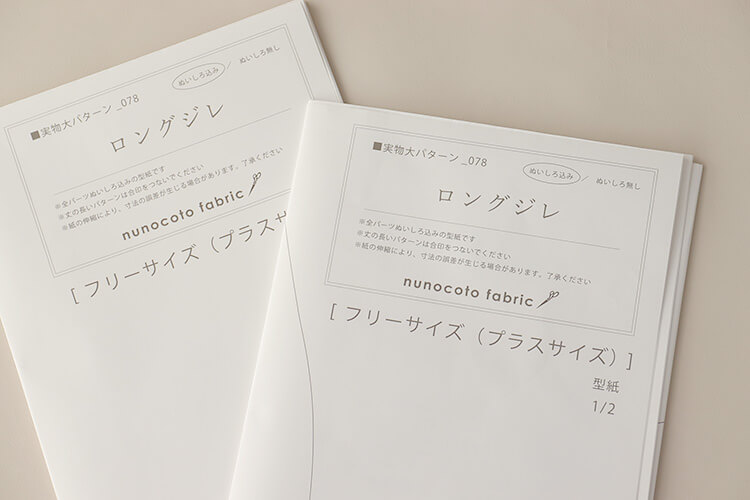 ■実物大パターン_078
ぬいしろ込み / ぬいしろ無し
ロングジレ
※全パーツぬいしろ込みの型紙です
※丈の長いパターンは合印をつないでください
※紙の伸縮により、寸法の誤差が生じる場合があります。了承ください
nunocoto fabric
[ フリーサイズ（プラスサイ
■実物大パターン_078
ぬいしろ込み / ぬいしろ無し
ロングジレ
※全パーツぬいしろ込みの型紙です
※丈の長いパターンは合印をつないでください
※紙の伸縮により、寸法の誤差が生じる場合があります。了承ください
nunocoto fabric
[ フリーサイズ（プラスサイズ）]
型紙
1/2